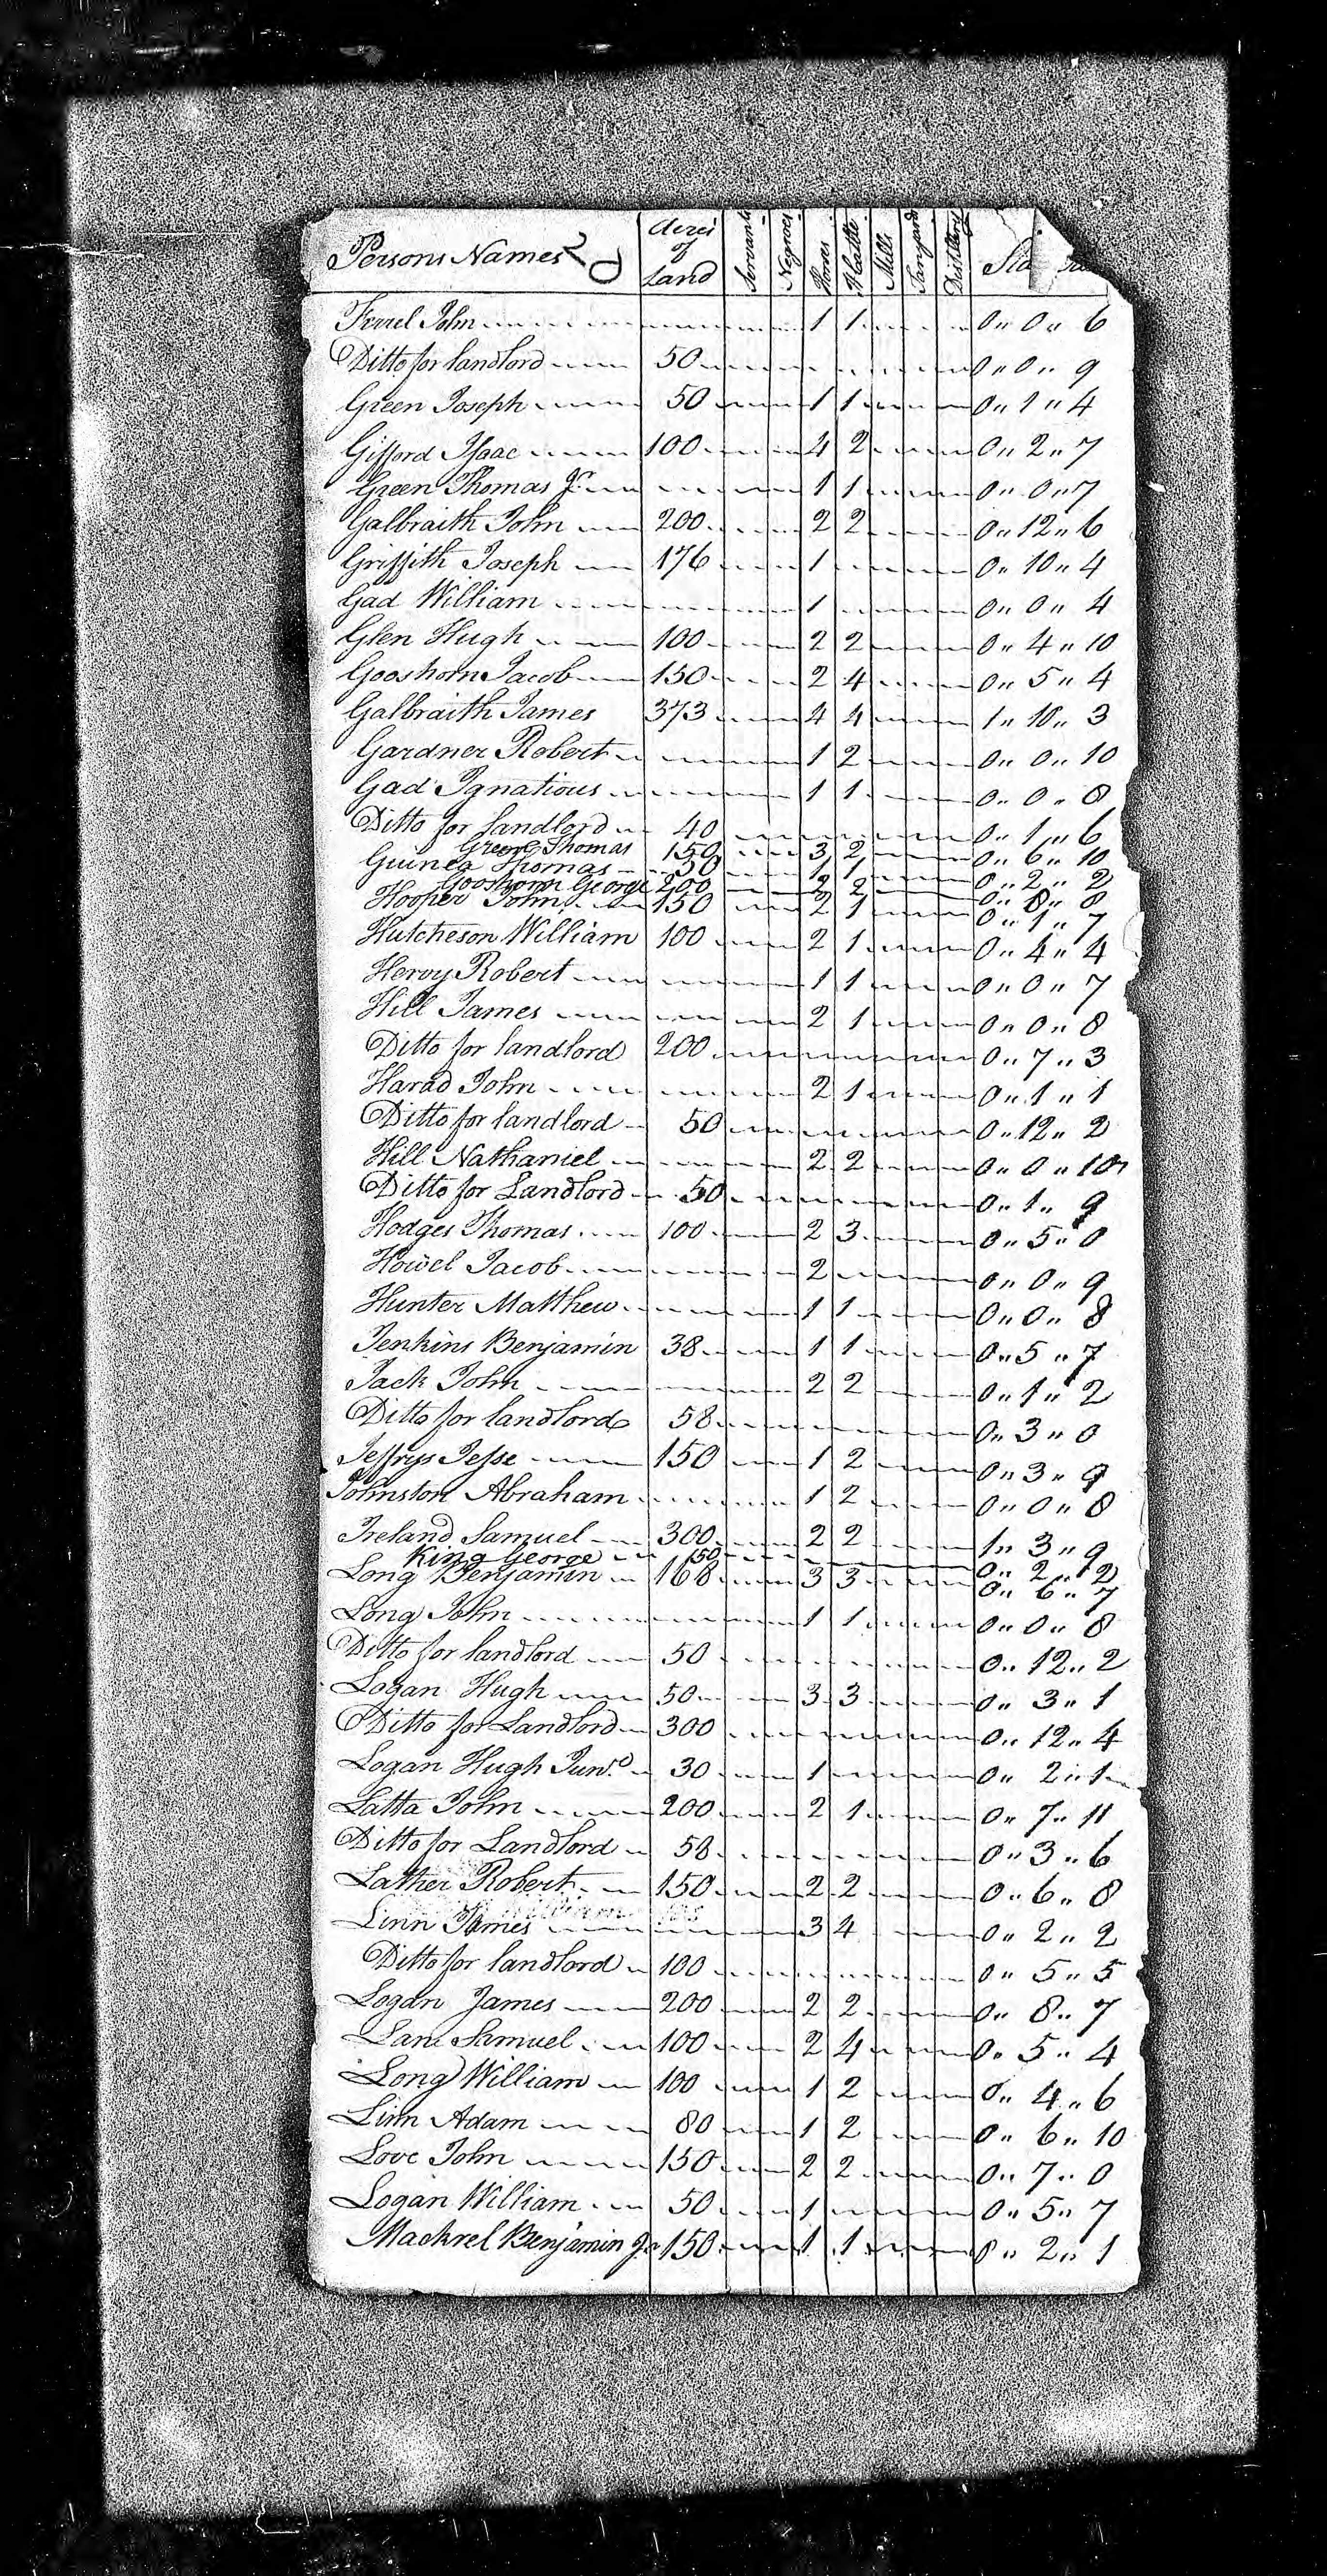 Persons Names Acres of Land Servants Negroes Horses Cattle Mills Tanyard Distillery
Ferrel John 1 1 0 " 0 " 6
Ditto for landlord 50 0 " 0 " 9
Green Joseph 50 1 1 0 " 1 " 4
Gifford Isaac 100 4 2 0 " 2 " 7
Green Thomas Jr 1 1 0 " 0 " 7
Galbraith John 200 2 2 0 " 12 " 6
Griffith Joseph 176 1 0 " 10 " 4
Gad William 1 0 " 0 " 4
Glen Hugh 100 2 2 0 " 4 " 10
Gooshorn Jacob 150 2 4 0 " 5 " 4
Galbraith James 373 4 4 1 " 10 " 3
Gardner Robert 1 2 0 " 0 " 10
Gad Ignatious 1 1 0 " 0 " 8
Ditto for Landlord 40 0 " 1 " 6
Green Thomas 150 3 2 0 " 6 " 10
Guinea Thomas 50 1 1 0 " 2 " 2
Gooshorn George 200 2 2 0 " 8 " 8
Hooper John 150 2 1 0 " 1 " 7
Hutcheson William 100 2 1 0 " 4 " 4
Hervy Robert 1 1 0 " 0 " 7
Hill James 2 1 0 " 0 " 8
Ditto for landlord 200 0 " 7 " 3
Harad John 2 1 0 " 1 " 1
Ditto for landlord 50 0 " 12 " 2
Hill Nathaniel 2 2 0 " 0 " 10
Ditto for Landlord 50 0 " 1 " 9
Hodges Thomas 100 2 3 0 " 5 " 0
Howel Jacob 2 0 " 0 " 9
Hunter Matthew 1 1 0 " 0 " 8
Jenkins Benjamin 38 1 1 0 " 5 " 7
Jack John 2 2 0 " 1 " 2
Ditto for landlord 58 0 " 3 " 0
Jeffrys Jesse 150 1 2 0 " 3 " 9
Johnston Abraham 1 2 0 " 0 " 8
Ireland Samuel 300 2 2 1 " 3 " 9
King George 50 0 " 2 " 2
Long Benjamin 168 3 3 0 " 6 " 7
Long John 1 1 0 " 0 " 8
Ditto for landlord 50 0 " 12 " 2
Logan Hugh 50 3 3 0 " 3 " 1
Ditto for Landlord 300 0 " 12 " 4
Logan Hugh Junr 30 1 0 " 2 " 1
Latta John 200 2 1 0 " 7 " 11
Ditto for Landlord 58 0 " 3 " 6
Lather Robert 150 2 2 0 " 6 " 8
Linn James 3 4 0 " 2 " 2
Ditto for landlord 100 0 " 5 " 5
Logan James 200 2 2 0 " 8 " 7
Lane Samuel 100 2 4 0 " 5 " 4
Long William 100 1 2 0 " 4 " 6
Linn Adam 80 1 2 0 " 6 " 10
Love John 150 2 2 0 " 7 " 0
Logan William 50 1 0 " 5 " 7
Mackrel Benjamin Jr 150 1 1 0 " 2 " 1